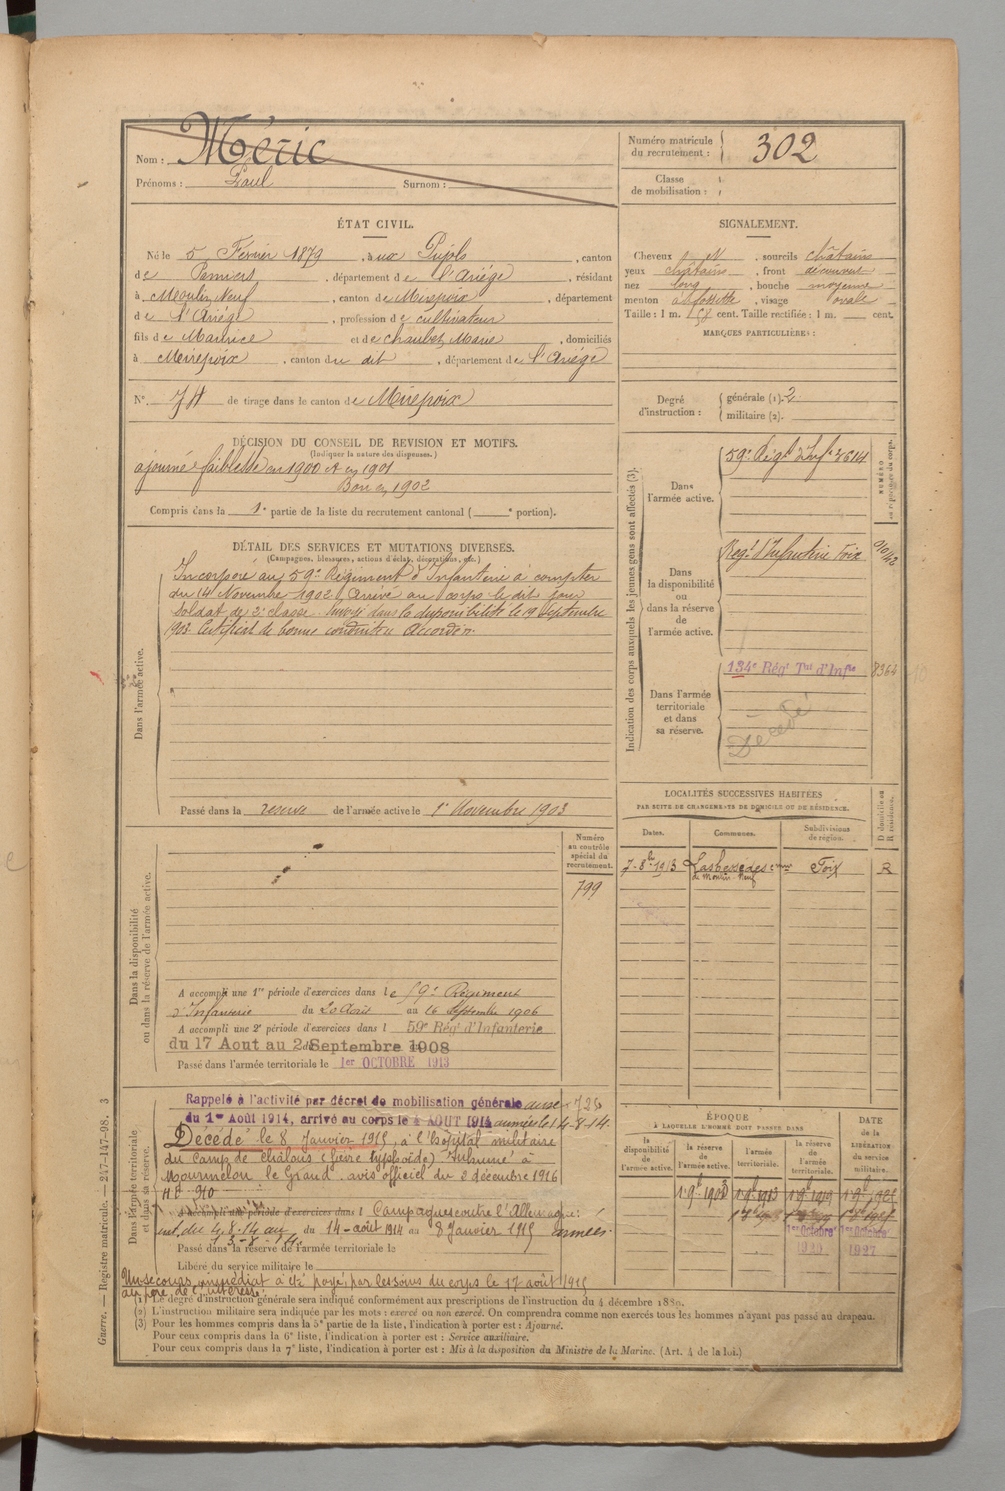 Nom : Méric
Prénoms : Paul Surnom :
Numéro matricule du recrutement : 302
Classe de mobilisation :
ÉTAT CIVIL.
Né le 5 Février 1879, à aux Pujols, canton
de Pamiers, département de l'Ariége, résidant
à Moulin Neuf, canton de Mirepoix, département
de l'Ariége, profession de cultivateur
fils de Maurice et de Chaubet Marie, domiciliés
à Mirepoix, canton du dit, département de l'Ariége
SIGNALEMENT.
Cheveux, sourcils châtains
yeux châtains, front découvert
nez long, bouche moyenne
menton à fossette, visage ovale
Taille : 1 m. cent. Taille rectifiée : 1 m. cent.
MARQUES PARTICULIÈRES :
N° de tirage dans le canton de Mirepoix
Degré d'instruction : générale (1). 2
militaire (2).
DÉCISION DU CONSEIL DE REVISION ET MOTIFS.
(Indiquer la nature des dispenses.)
ajourné faiblesse en 1900 et en 1901
Bon en 1902
Compris dans la 1e partie de la liste du recrutement cantonal ( e portion).
DÉTAIL DES SERVICES ET MUTATIONS DIVERSES.
(Campagnes, blessures, actions d'éclat, décorations, etc.)
Dans l'armée active.
Incorporé au 59e Régiment d'Infanterie à compter
du 14 Novembre 1902 Arrivé au corps le dit jour
Soldat de 2e classe. Envoyé dans la disponibilité le 19 Septembre
1903 Certificat de bonne conduite Accordé.
Passé dans la réserve de l'armée active le 1er Novembre 1903
Indication des corps auxquels les jeunes gens sont affectés (3).
NUMÉRO au répertoire du corps.
Dans l'armée active.
59e Régt d'Inf. 2614
Dans la disponibilité ou dans la réserve de l'armée active.
Régt d'Infanterie Foix
Dans l'armée territoriale et dans sa réserve.
134e Régt Tal d'Infie 8363
Décédé
LOCALITÉS SUCCESSIVES HABITÉES
PAR SUITE DE CHANGEMENTS DE DOMICILE OU DE RÉSIDENCE.
Dates. Communes. Subdivisions de région. D domicile ou R résidence.
7-8bre 1913 Foix R
de Moulin-Neuf
Dans la disponibilité ou dans la réserve de l'armée active.
Numéro au contrôle spécial du recrutement.
799
A accompli une 1re période d'exercices dans le 59e Régiment
d'Infanterie du 20 Août au 16 Septembre 1906
A accompli une 2e période d'exercices dans l 59e Régt d'Infanterie
du 17 Aout au 2 Septembre 1908
Passé dans l'armée territoriale le 1er OCTOBRE 1913
Dans l'armée territoriale et dans sa réserve.
Rappelé à l'activité par décret de mobilisation générale
du 1er Août 1914, arrivé au corps le 4 AOUT 1914
Décédé le 8 Janvier 1915, à l'hôpital militaire
du camp de Chalons (fièvre typhoïde) Inhumé à
Mourmelon le Grand. avis officiel du 2 décembre 1916
A accompli une période d'exercices dans l Campagnes contre l'Allemagne:
int. du 4.8.14 au 13-8-14. du 14-août 1914 au 8 Janvier 1915 armées.
Passé dans la réserve de l'armée territoriale le
Libéré du service militaire le
Un secours immédiat à payé par les soins du corps le 17 août 1915
au père de l'intéressé.
ÉPOQUE
À LAQUELLE L'HOMME DOIT PASSER DANS
la disponibilité de l'armée active. la réserve de l'armée active. l'armée territoriale. la réserve de l'armée territoriale.
DATE de la LIBÉRATION du service militaire.
1 9bre 1903 1 9bre 1913 1 9bre 1919
1er Octobre 1er Octobre
1927
(1) Le degré d'instruction générale sera indiqué conformément aux prescriptions de l'instruction du 4 décembre 1889.
(2) L'instruction militaire sera indiquée par les mots : exercé ou non exercé. On comprendra comme non exercés tous les hommes n'ayant pas passé au drapeau.
(3) Pour les hommes compris dans la 5e partie de la liste, l'indication à porter est : Ajourné.
Pour ceux compris dans la 6e liste, l'indication à porter est : Service auxiliaire.
Pour ceux compris dans la 7e liste, l'indication à porter est : Mis à la disposition du Ministre de la Marine. (Art. 4 de la loi.)
Guerre. — Registre matricule. — 247-147-98. 3